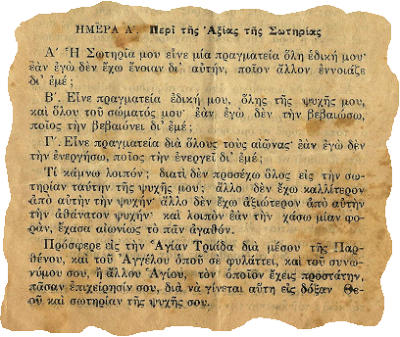 ΗΜΕΡΑ Α΄. Περὶ τῆς Ἀξίας τῆς Σωτηρίας
Α΄ Ἡ Σωτηρία μου εἶνε μία πραγματεία ὅλη ἐδική μου·
ἐὰν ἐγὼ δὲν ἔχω ἔνοιαν δι᾽ αὐτήν, ποῖον ἄλλον ἐννοιάζε
δι᾽ ἐμέ;
Β΄. Εἶνε πραγματεία ἐδική μου, ὅλης τῆς ψυχῆς μου,
καὶ ὅλου τοῦ σώματός μου· ἐὰν ἐγὼ δὲν τὴν βεβαιώσω,
ποῖος τὴν βεβαιώνει δι᾽ ἐμέ;
Γ΄. Εἶνε πραγματεία διὰ ὅλους τοὺς αἰῶνας· ἐὰν ἐγὼ δὲν
τὴν ἐνεργήσω, ποῖος τὴν ἐνεργεῖ δι᾽ ἐμέ;
Τί κάμνω λοιπόν; διατὶ δὲν προσέχω ὅλος εἰς τὴν σω-
τηρίαν ταύτην τῆς ψυχῆς μου; ἄλλο δὲν ἔχω καλλίτερον
ἀπὸ αὐτὴν τὴν ψυχήν· ἄλλο δὲν ἔχω ἀξιώτερον ἀπὸ αὐτὴν
τὴν ἀθάνατον ψυχήν· καὶ λοιπὸν ἐὰν τὴν χάσω μίαν φο-
ράν, ἔχασα αἰωνίως τὸ πᾶν ἀγαθόν.
Πρόσφερε εἰς τὴν Ἁγίαν Τριάδα διὰ μέσου τῆς Παρ-
θένου, καὶ τοῦ Ἀγγέλου ὁποῦ σὲ φυλάττει, καὶ τοῦ συνω-
νύμου σου, ἢ ἄλλου Ἁγίου, τὸν ὁποῖον ἔχεις προστάτην,
πᾶσαν ἐπιχείρησίν σου, διὰ νὰ γίνεται αὕτη εἰς δόξαν Θε-
οῦ καὶ σωτηρίαν τῆς ψυχῆς σου.